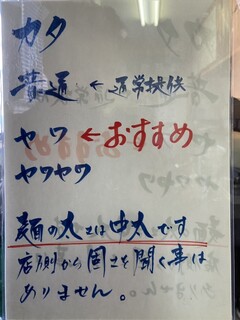 カタ
普通 ← 通常提供
ヤワ ← おすすめ
ヤワヤワ
麺の太さは中太です
店側から固さを聞く事は
ありません。